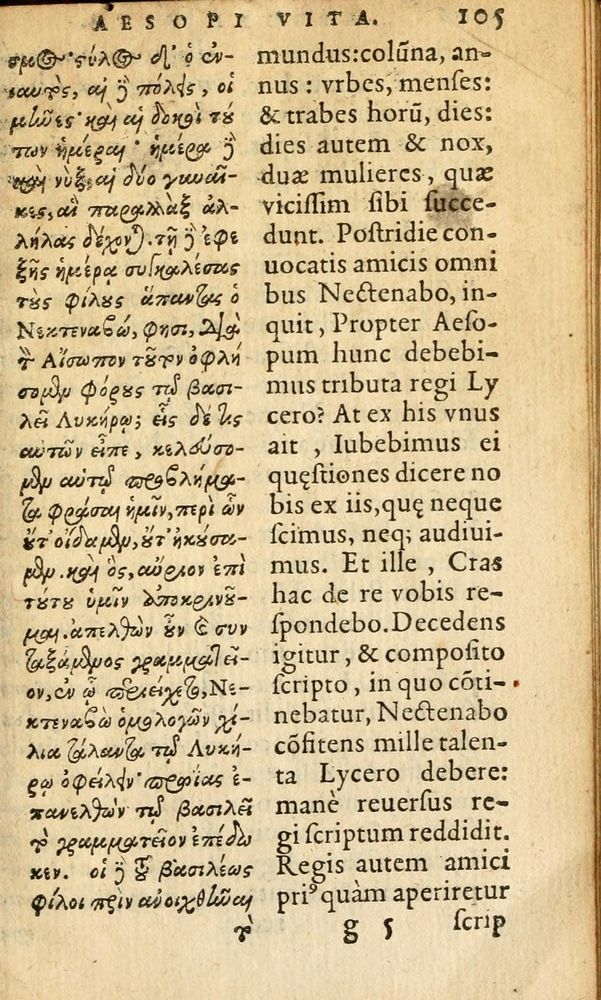 AESOPI VITA. 105
σμος· στύλος δ' ὁ ἐν-
ιαυτὸς, αἱ ἢ πόλεις, οἱ
μῆνες· καὶ αἱ δοκοὶ τού
των ἡμέραι· ἡμέρα ἢ
καὶ νὺξ, αἱ δύο γυναῖ-
κες, αἳ παραλλὰξ ἀλ-
λήλας δέχονται. τῇ ἢ ἐφε
ξῆς ἡμέρα συγκαλέσας
τοὺς φίλους ἅπαντας ὁ
Νεκτεναβώ, φησι, Διὰ
τὸν Αἴσωπον τοῦτον ὀφλή
σομεν φόρους τῷ βασι-
λεῖ Λυκήρῳ; εἷς δέ τις
αὐτῶν εἶπε, κελεύσο-
μεν αὐτῷ προβλήμα-
τα φράσαι ἡμῖν, περὶ ὧν
οὔτ' οἴδαμεν, οὔτ' ἠκούσα-
μεν. καὶ ὃς, αὔριον ἐπὶ
τούτου ὑμῖν ἀποκρινοῦ-
μαι. ἀπελθὼν οὖν καὶ συν
ταξάμενος γραμματεῖ-
ον, ἐν ᾧ περιείχετο, Νε-
κτεναβὼ ὁμολογῶν χί-
λια τάλαντα τῷ Λυκή-
ρῳ ὀφείλειν· πρωΐας ἐ-
πανελθὼν τῷ βασιλεῖ
τὸ γραμματεῖον ἐπέδω
κεν. οἱ ἢ τοῦ βασιλέως
φίλοι πρὶν ἀνοιχθῆναι
τὸ
mundus:colūna, an-
nus : vrbes, menses:
& trabes horū, dies:
dies autem & nox,
duæ mulieres, quæ
vicissim sibi succe-
dunt. Postridie con-
uocatis amicis omni
bus Nectenabo, in-
quit, Propter Aeso-
pum hunc debebi-
mus tributa regi Ly
cero? At ex his vnus
ait , Iubebimus ei
quęstiones dicere no
bis ex iis, quę neque
scimus, neq; audiui-
mus. Et ille , Cras
hac de re vobis re-
spondebo. Decedens
igitur, & composito
scripto, in quo cōti-
nebatur, Nectenabo
cōfitens mille talen-
ta Lycero debere:
manè reuersus re-
gi scriptum reddidit.
Regis autem amici
priꝰ quàm aperiretur
g 5 scrip